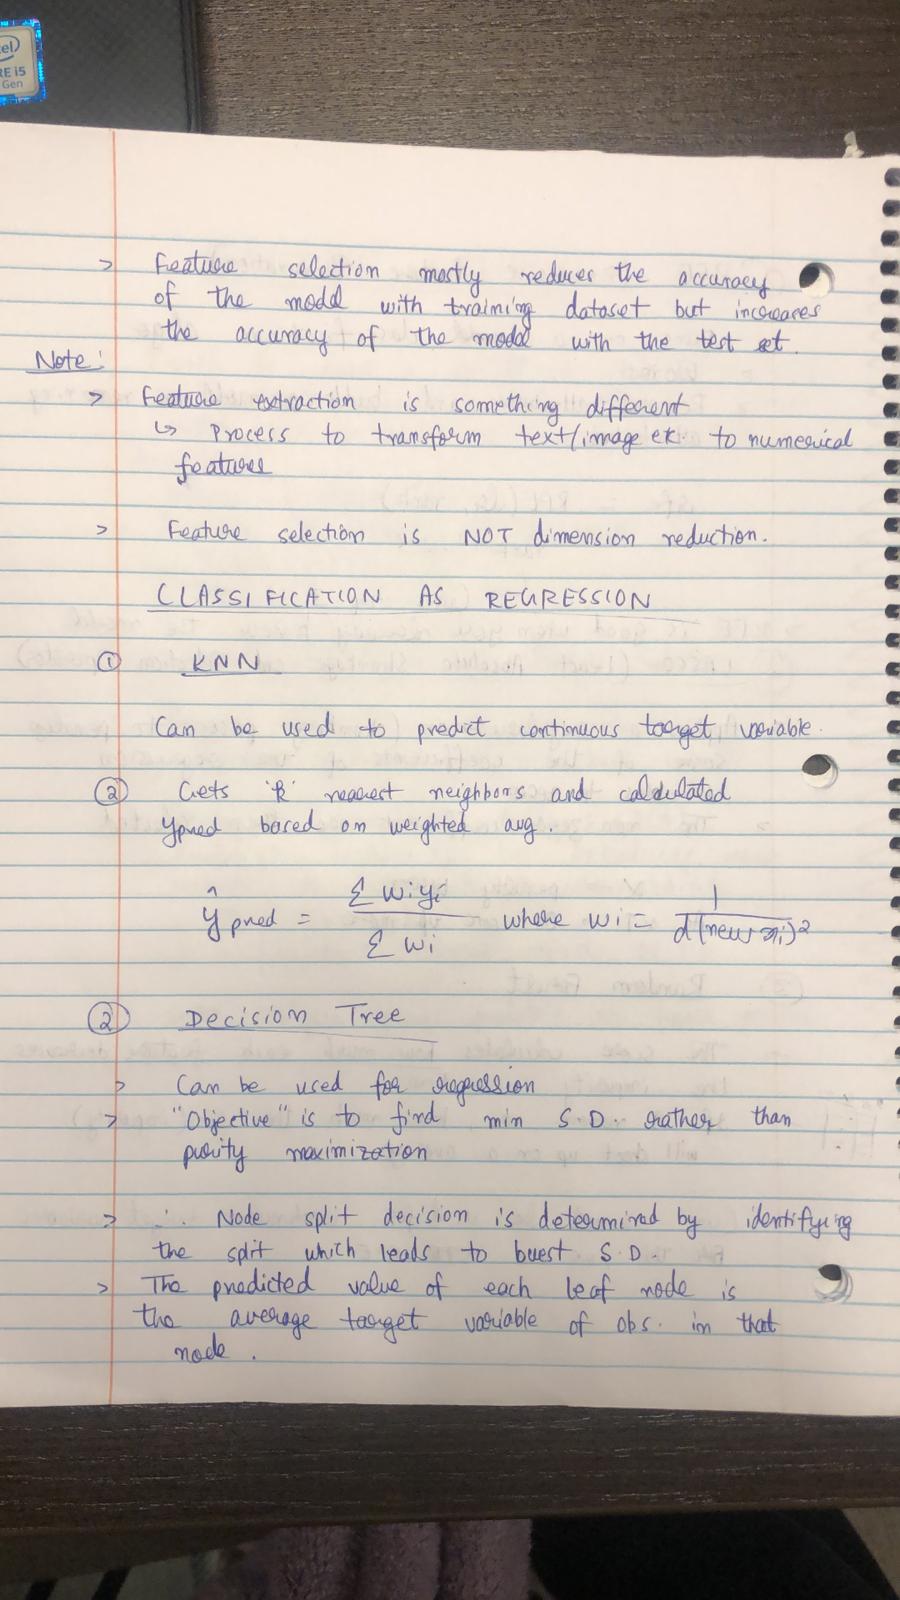 tel)
RE i5
Gen
> Feature selection mostly reduces the accuracy
of the model with training dataset but increases
the accuracy of the model with the test set.
Note:
> Feature extraction is something different
↳ Process to transform text/image etc. to numerical
features
> Feature selection is NOT dimension reduction.
CLASSIFICATION AS REGRESSION
① KNN
Can be used to predict continuous target variable.
② Gets 'k' nearest neighbors and calculated
ypred based on weighted avg.
ŷpred = Σ wiyi / Σ wi where wi = 1 / d(new xi)²
② Decision Tree
> Can be used for regression
> "Objective" is to find min S.D. rather than
purity maximization
> ∴ Node split decision is determined by identifying
the split which leads to S.D.
> The predicted value of each leaf node is
the average target variable of obs. in that
node.